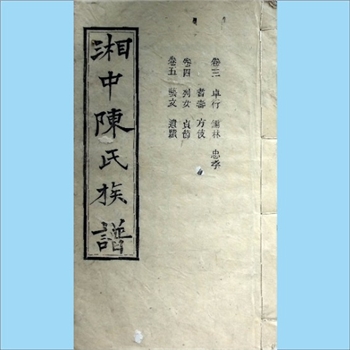 湘中陳氏族譜
卷三 卓行 儒林 忠孝
耆壽 方伎
卷四 列女 貞節
卷五 藝文 遺蹟